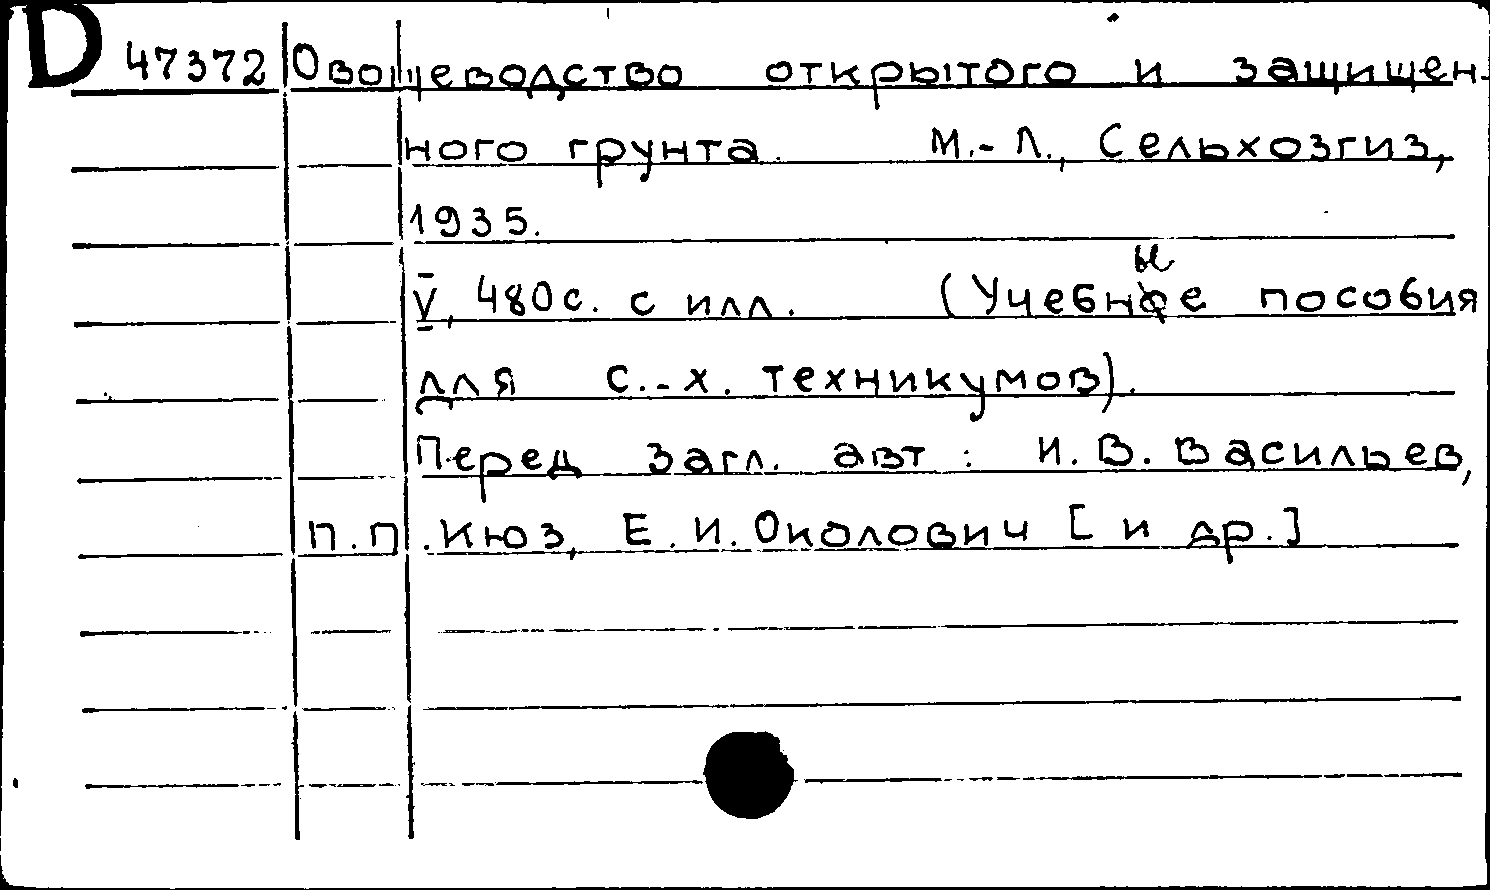 D 47372 Овощеводство открытого и защищен-
ного грунта. М.-Л., Сельхозгиз,
1935.
V, 480с. с илл. (Учебные пособия
для с.-х. техникумов).
Перед загл. авт: И.В. Васильев,
П.П. Кюз, Е.И. Околович [и др.]